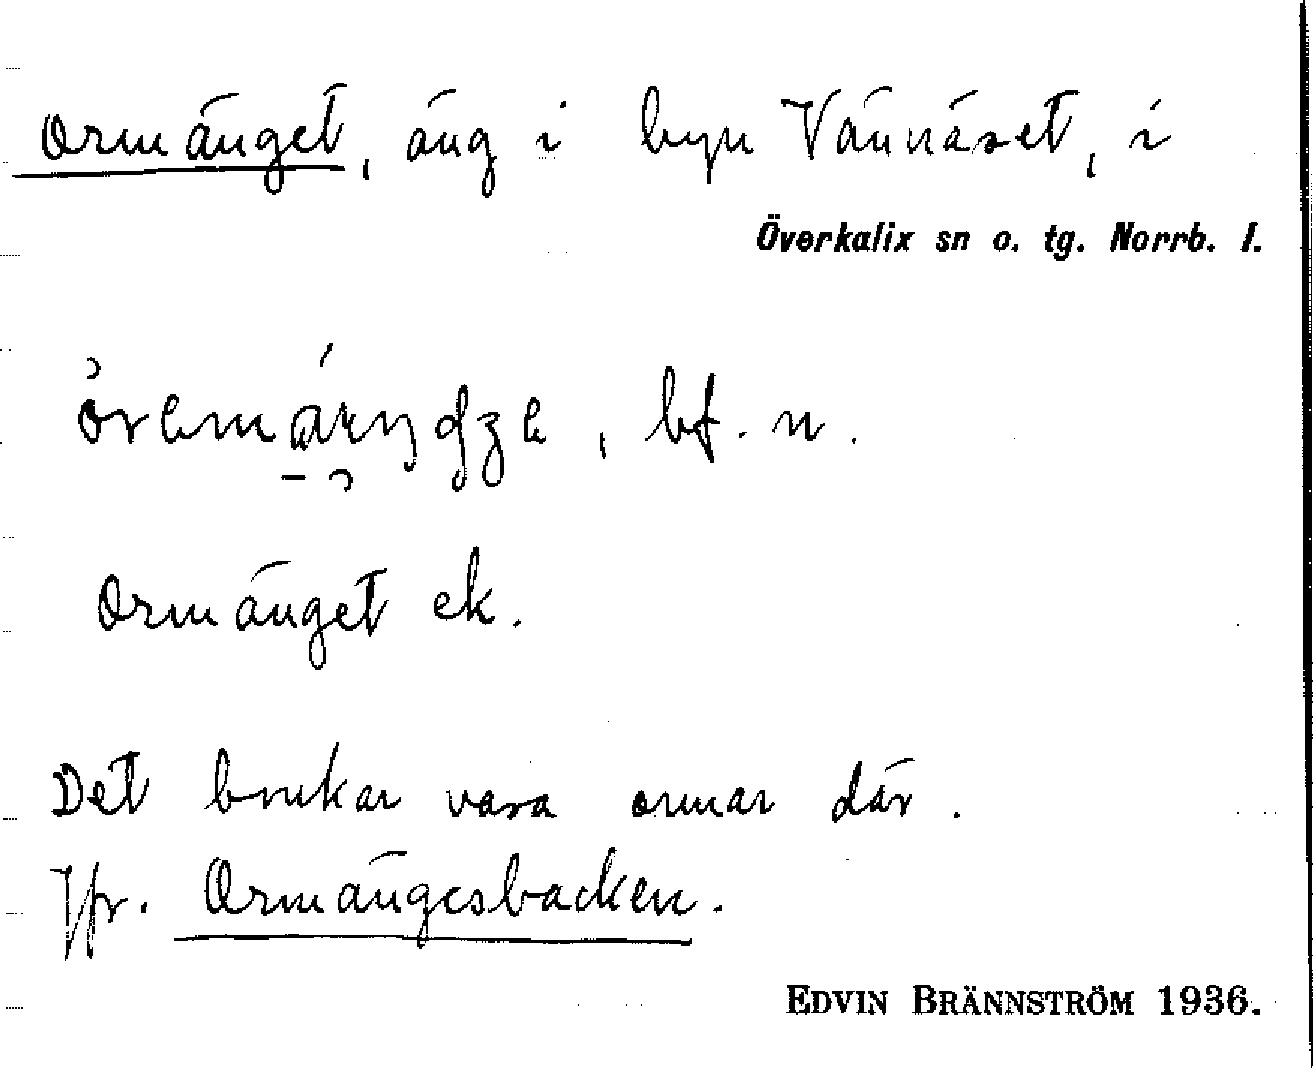 Ormänget, äng i byn Vännäset, i
Överkalix sn o. tg. Norrb. l.
, bf. n.
Ormänget ek.
Det brukar vara ormar där.
Jfr. Ormängesbacken.
EDVIN BRÄNNSTRÖM 1936.